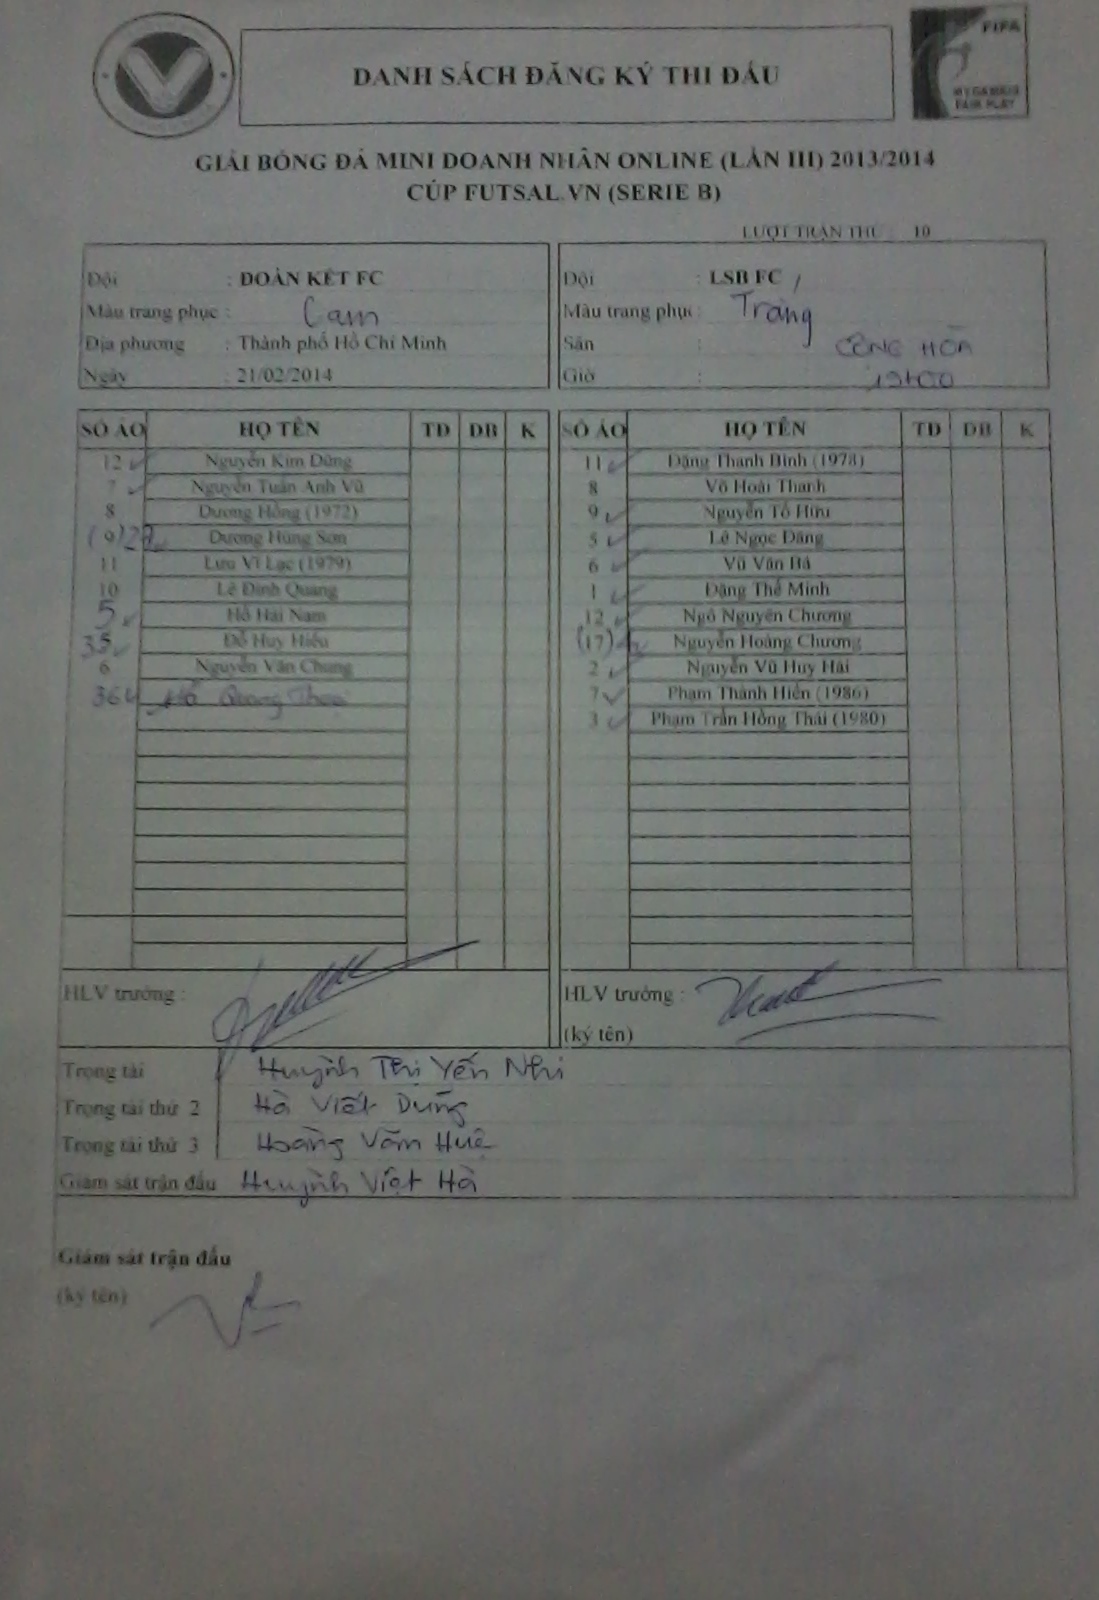 FIFA
MY GAME IS
FAIR PLAY
DANH SÁCH ĐĂNG KÝ THI ĐẤU
GIẢI BÓNG ĐÁ MINI DOANH NHÂN ONLINE (LẦN III) 2013/2014
CÚP FUTSAL.VN (SERIE B)
LƯỢT TRẬN THỨ : 10
Đội : ĐOÀN KẾT FC
Màu trang phục : Cam
Địa phương : Thành phố Hồ Chí Minh
Ngày : 21/02/2014
Đội : LSB FC
Màu trang phục : Trắng
Sân : CỘNG HÒA
Giờ : 19H00
SỐ ÁO HỌ TÊN TD DB K
12 Nguyễn Kim Dũng
7 Nguyễn Tuấn Anh Vũ
8 Dương Hồng (1972)
(9) Dương Hùng Sơn
11 Lưu Vĩ Lạc (1979)
10 Lê Đình Quang
5 Hồ Hải Nam
35 Đỗ Huy Hiếu
6 Nguyễn Văn Chung
36 Hồ Quang
SỐ ÁO HỌ TÊN TD DB K
11 Đặng Thanh Bình (1978)
8 Võ Hoài Thanh
9 Nguyễn Tố Hữu
5 Lê Ngọc Đăng
6 Vũ Văn Bá
1 Đặng Thế Minh
12 Ngô Nguyên Chương
(17) Nguyễn Hoàng Chương
2 Nguyễn Vũ Huy Hải
7 Phạm Thành Hiển (1986)
3 Phạm Trần Hồng Thái (1980)
HLV trưởng :
HLV trưởng :
(ký tên)
Trọng tài Huỳnh Thị Yến Nhi
Trọng tài thứ 2 Hà Viết Dũng
Trọng tài thứ 3 Hoàng Văn Huệ
Giám sát trận đấu Huỳnh Việt Hà
Giám sát trận đấu
(ký tên)